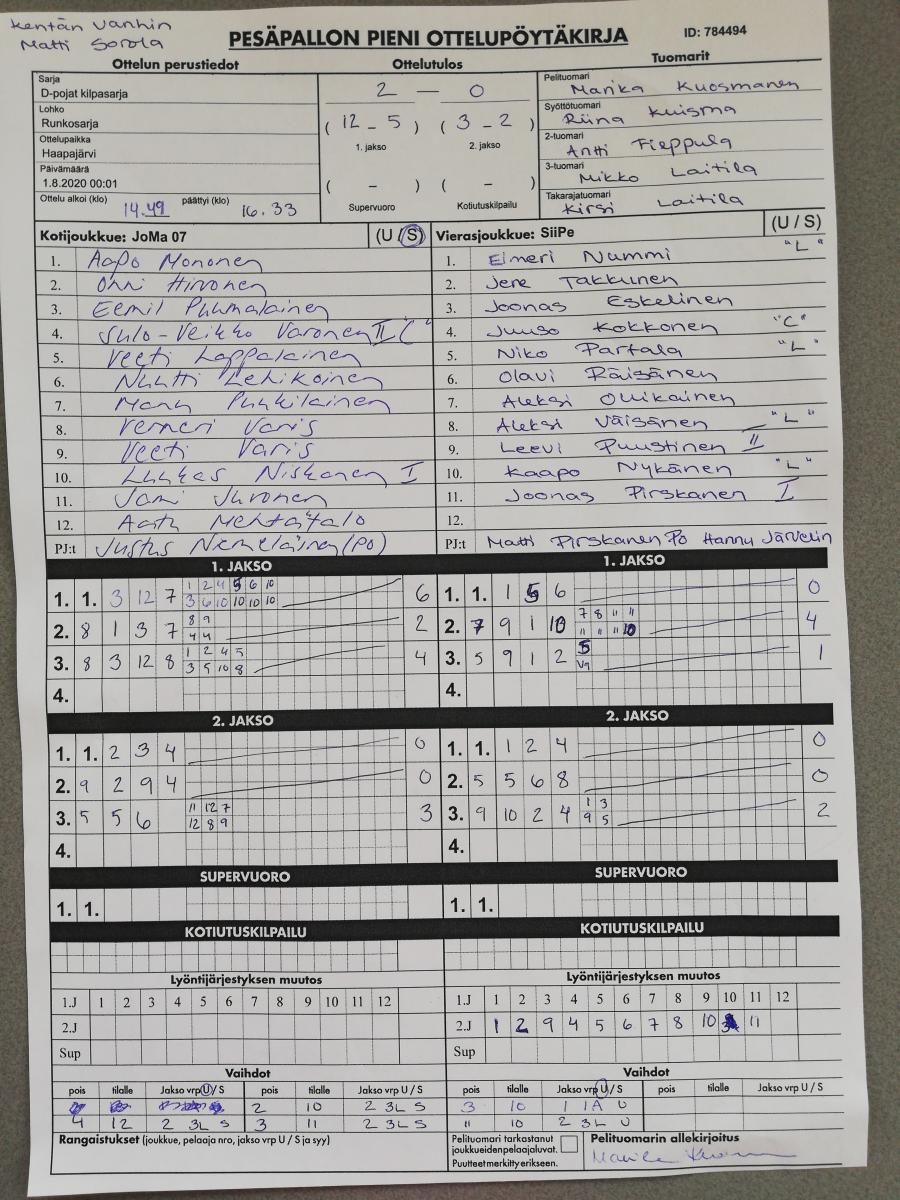 Kentän vanhin
Matti Sorola
PESÄPALLON PIENI OTTELUPÖYTÄKIRJA
ID: 784494
Ottelun perustiedot
Sarja
D-pojat kilpasarja
Lohko
Runkosarja
Ottelupaikka
Haapajärvi
Päivämäärä
1.8.2020 00:01
Ottelu alkoi (klo) 14.49 päättyi (klo) 16.33
Ottelutulos
2 — 0
( 12 - 5 ) ( 3 - 2 )
1. jakso 2. jakso
( - ) ( - )
Supervuoro Kotiutuskilpailu
Tuomarit
Pelituomari Marika Kuosmanen
Syöttötuomari Riina Kuisma
2-tuomari Antti Tieppula
3-tuomari Mikko Laitila
Takarajatuomari Kirsi Laitila
Kotijoukkue: JoMa 07 (U / S)
1. Aapo Mononen
2. Onni Hirvonen
3. Eemil Puumalainen
4. Sulo-Veikko Varonen II "C"
5. Veeti Lappalainen
6. Nuutti Lehikoinen
7. Manu Puukilainen
8. Verneri Varis
9. Veeti Varis
10. Luukas Niskanen I
11. Jami Juvonen
12. Aatu Mehtätalo
PJ:t Justus Niemeläinen (PO)
Vierasjoukkue: SiiPe (U / S)
1. Eimeri Nummi "L"
2. Jere Takkunen
3. Joonas Eskelinen
4. Juuso Kokkonen "C"
5. Niko Partala "L"
6. Olavi Räisänen
7. Aleksi Ollikainen
8. Aleksi Väisänen "L"
9. Leevi Puustinen II
10. Kaapo Nykänen "L"
11. Joonas Pirskanen I
12.
PJ:t Matti Pirskanen PO Hannu Järvelin
1. JAKSO
1. 1. 3 12 7 1 2 4 5 6 10 6
3 6 10 10 10 10
2. 8 1 3 7 8 9 2
4 4
3. 8 3 12 8 1 2 4 5 4
3 5 10 8
4.
1. JAKSO
1. 1. 1 5 6 0
2. 7 9 1 10 7 8 11 11 4
11 11 11 10
3. 5 9 1 2 5 1
V9
4.
2. JAKSO
1. 1. 2 3 4 0
2. 9 2 9 4 0
3. 5 5 6 11 12 7 3
12 8 9
4.
2. JAKSO
1. 1. 1 2 4 0
2. 5 5 6 8 0
3. 9 10 2 4 1 3 2
9 5
4.
SUPERVUORO
1. 1.
SUPERVUORO
1. 1.
KOTIUTUSKILPAILU
KOTIUTUSKILPAILU
Lyöntijärjestyksen muutos
1.J 1 2 3 4 5 6 7 8 9 10 11 12
2.J
Sup
Lyöntijärjestyksen muutos
1.J 1 2 3 4 5 6 7 8 9 10 11 12
2.J 1 2 9 4 5 6 7 8 10 3 11
Sup
Vaihdot
pois tilalle Jakso vrp U / S pois tilalle Jakso vrp U / S
2 10 2 3L S
4 12 2 3L S 3 11 2 3L S
Vaihdot
pois tilalle Jakso vrp U / S pois tilalle Jakso vrp U / S
3 10 1 1A U
11 10 2 3L U
Rangaistukset (joukkue, pelaaja nro, jakso vrp U / S ja syy)
Pelituomari tarkastanut
joukkueiden pelaajaluvat.
Puutteet merkitty erikseen.
Pelituomarin allekirjoitus